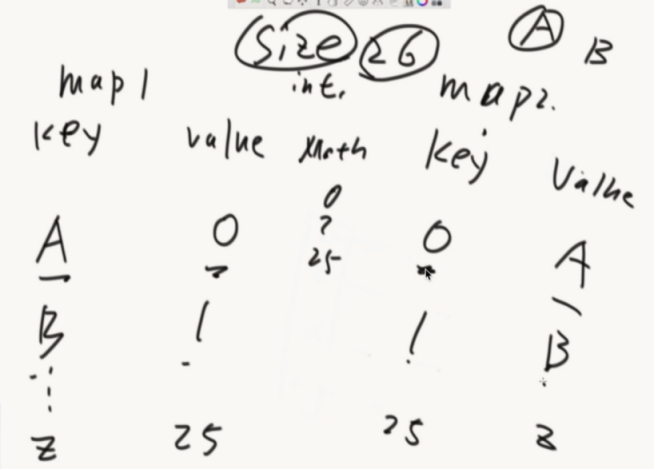 size 26 A B
map1 int. map2.
key value Math key value
0
?
25
A 0 0 A
B 1 1 B
z 25 25 z